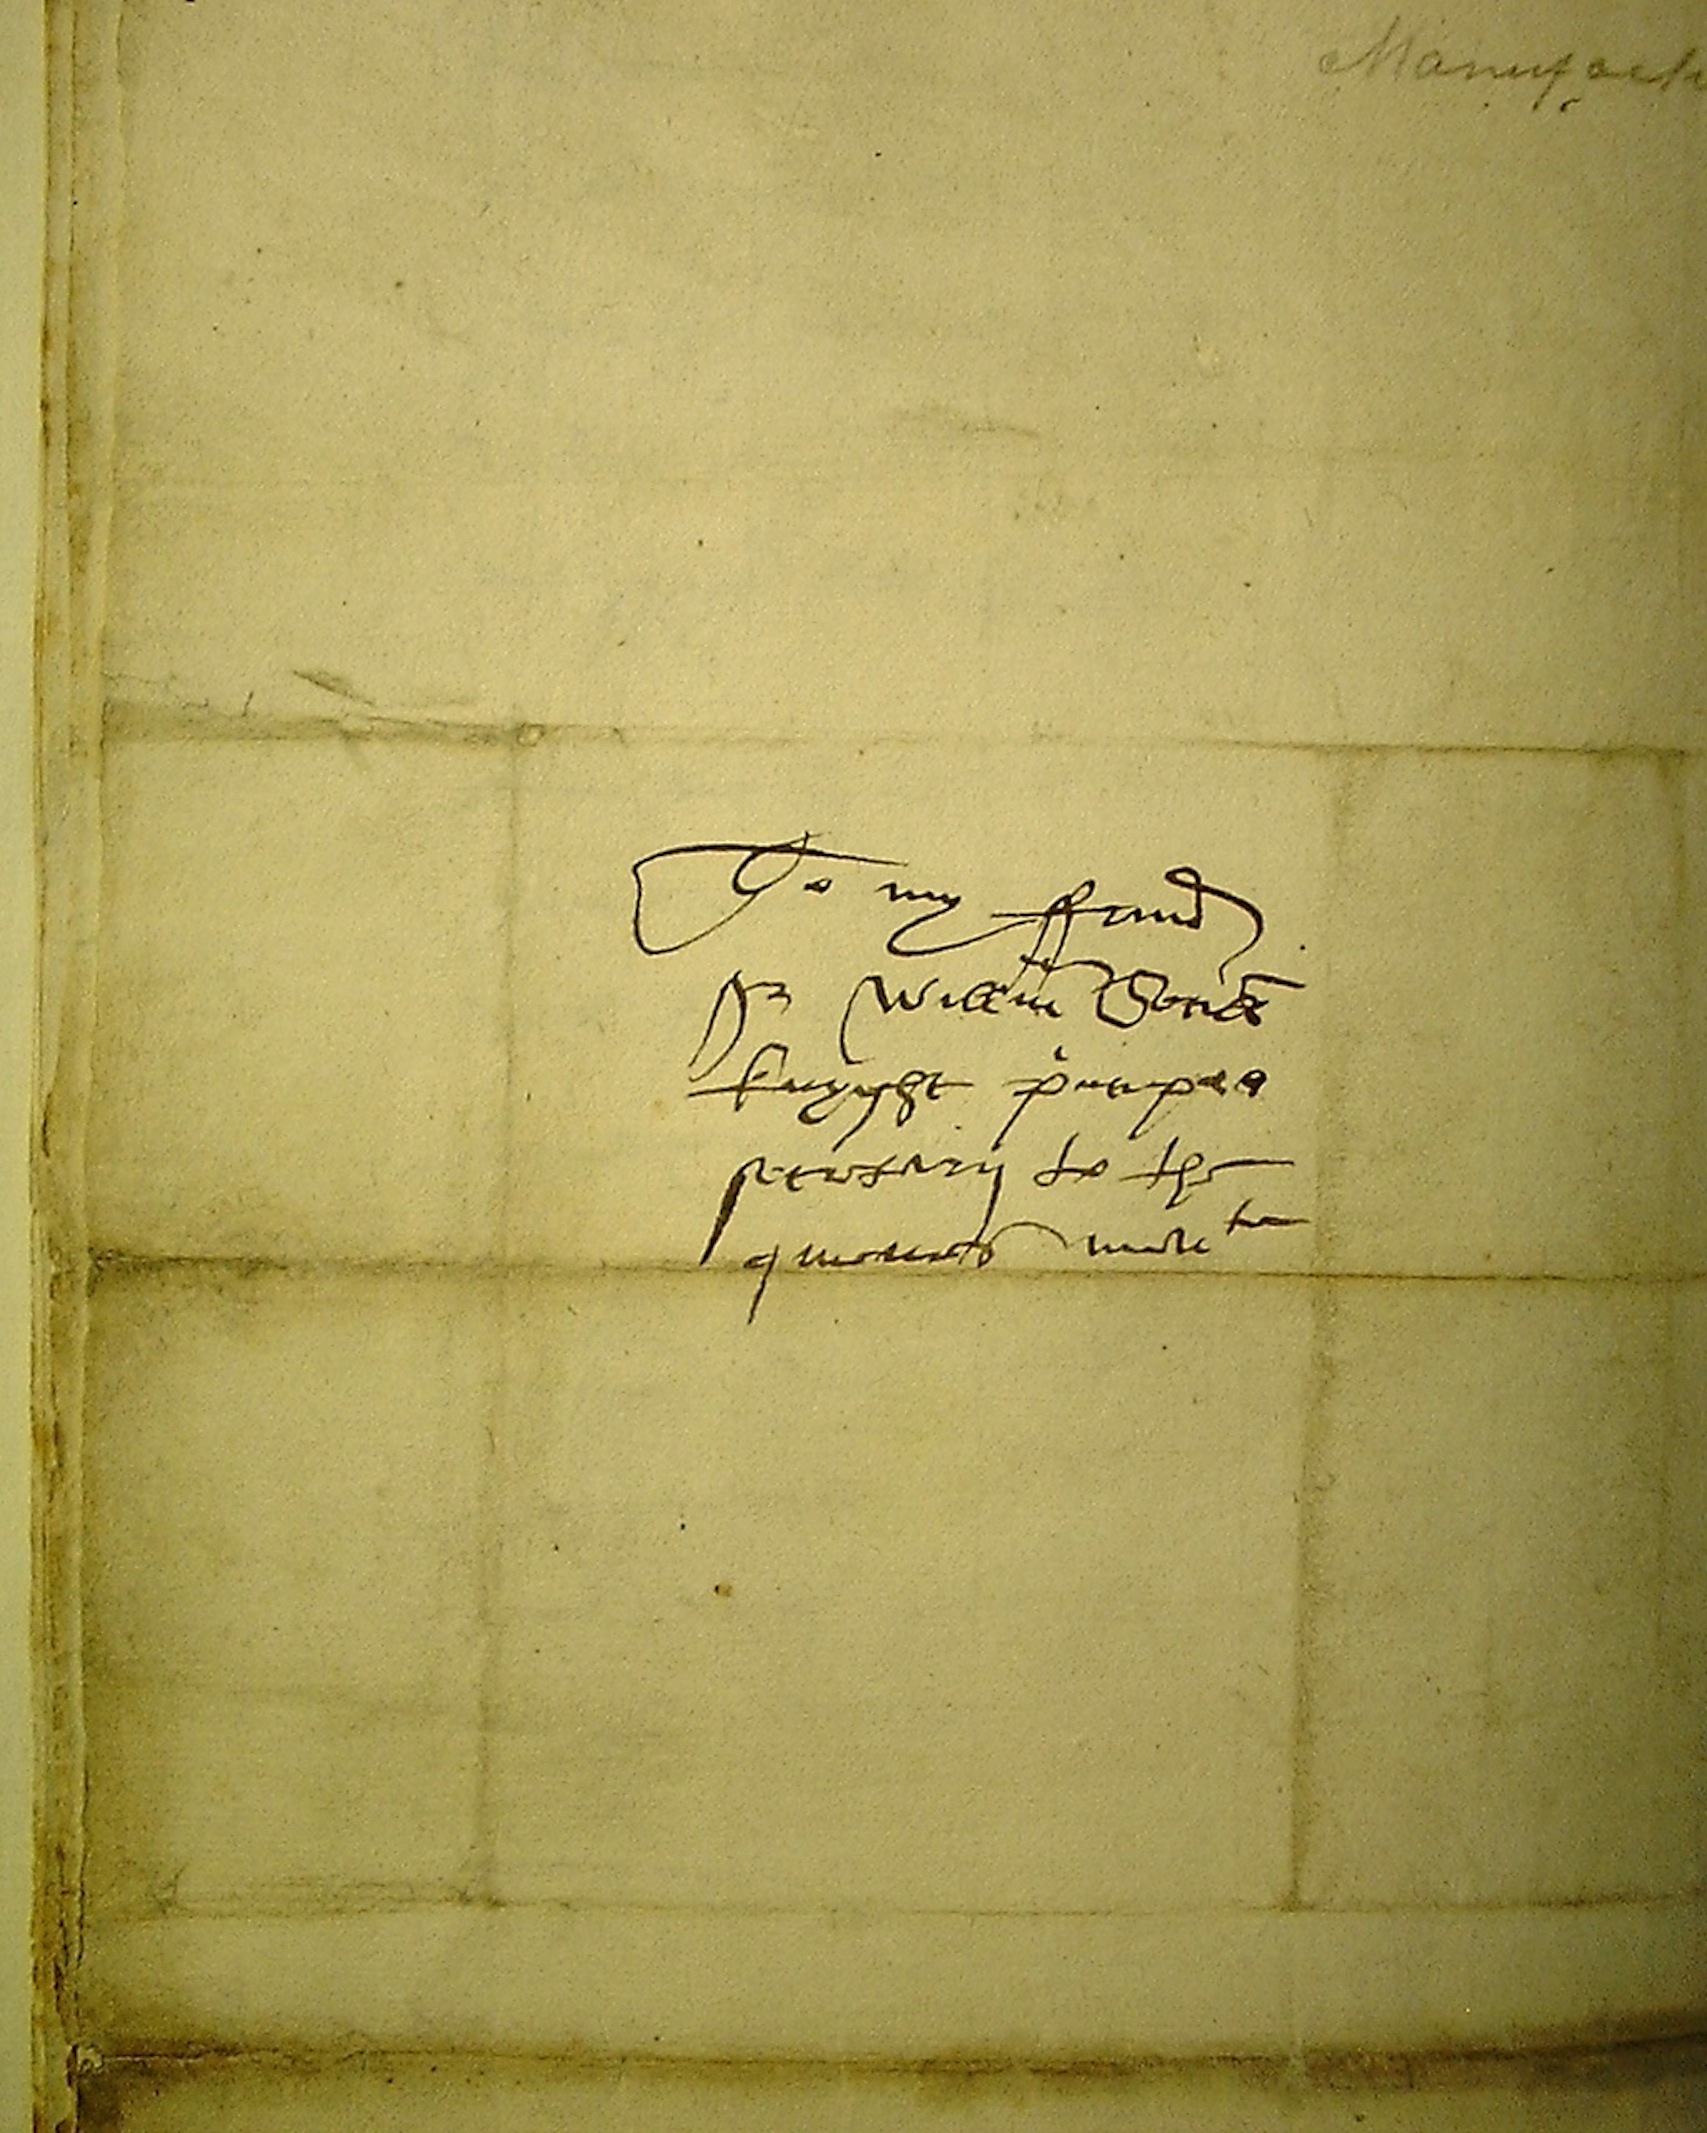 Manufact
To my ffrend
Sr Willm Cecill
knyght prinȝpall
secretary to the
quenes maiestie